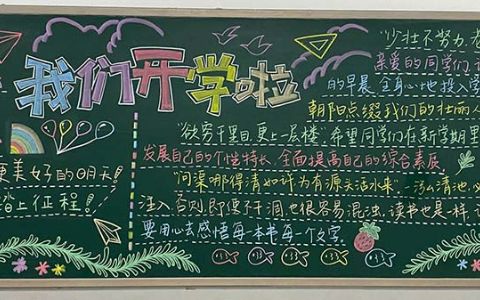 我们开学啦
"少壮不努力,老
亲爱的同学们,
的早晨,全身心地投入
朝阳点缀我们的壮丽人
"欲穷千里目,更上一层楼",希望同学们在新学期里
发展自己的个性特长,全面提高自己的综合素质。
"问渠哪得清如许为有源头活水来",
注入,否则,即便不涸,也很容易混浊,读书也是一样,
要用心去感悟每一本书每一个文字.
更美好的明天!
踏上征程!